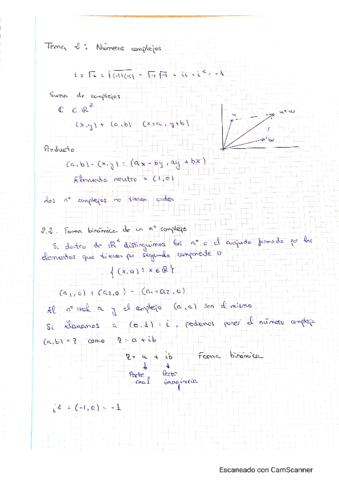 Tema 2: Números complejos
Suma de complejos
(x,y) + (a,b) (x+a, y+b)
Producto
(a,b) · (x,y) = (ax - by, ay + bx)
Elemento neutro = (1,0)
Los nº complejos no tienen orden
2.2. Forma binómica de un nº complejo
Si dentro de ℝ² distinguimos los nº o el conjunto formado por los
elementos que tienen por segunda componente 0
{(x,0) : x ∈ ℝ}
(a₁,0) + (a₂,0) = (a₁+a₂,0)
El nº real a y el complejo (a,0) son el mismo
Si llamamos a (0,1) = i, podemos poner el número complejo
(a,b) = z como z = a + ib
z = a + ib Forma binómica
Parte Parte
real imaginaria
= (-1,0) = -1
Escaneado con CamScanner